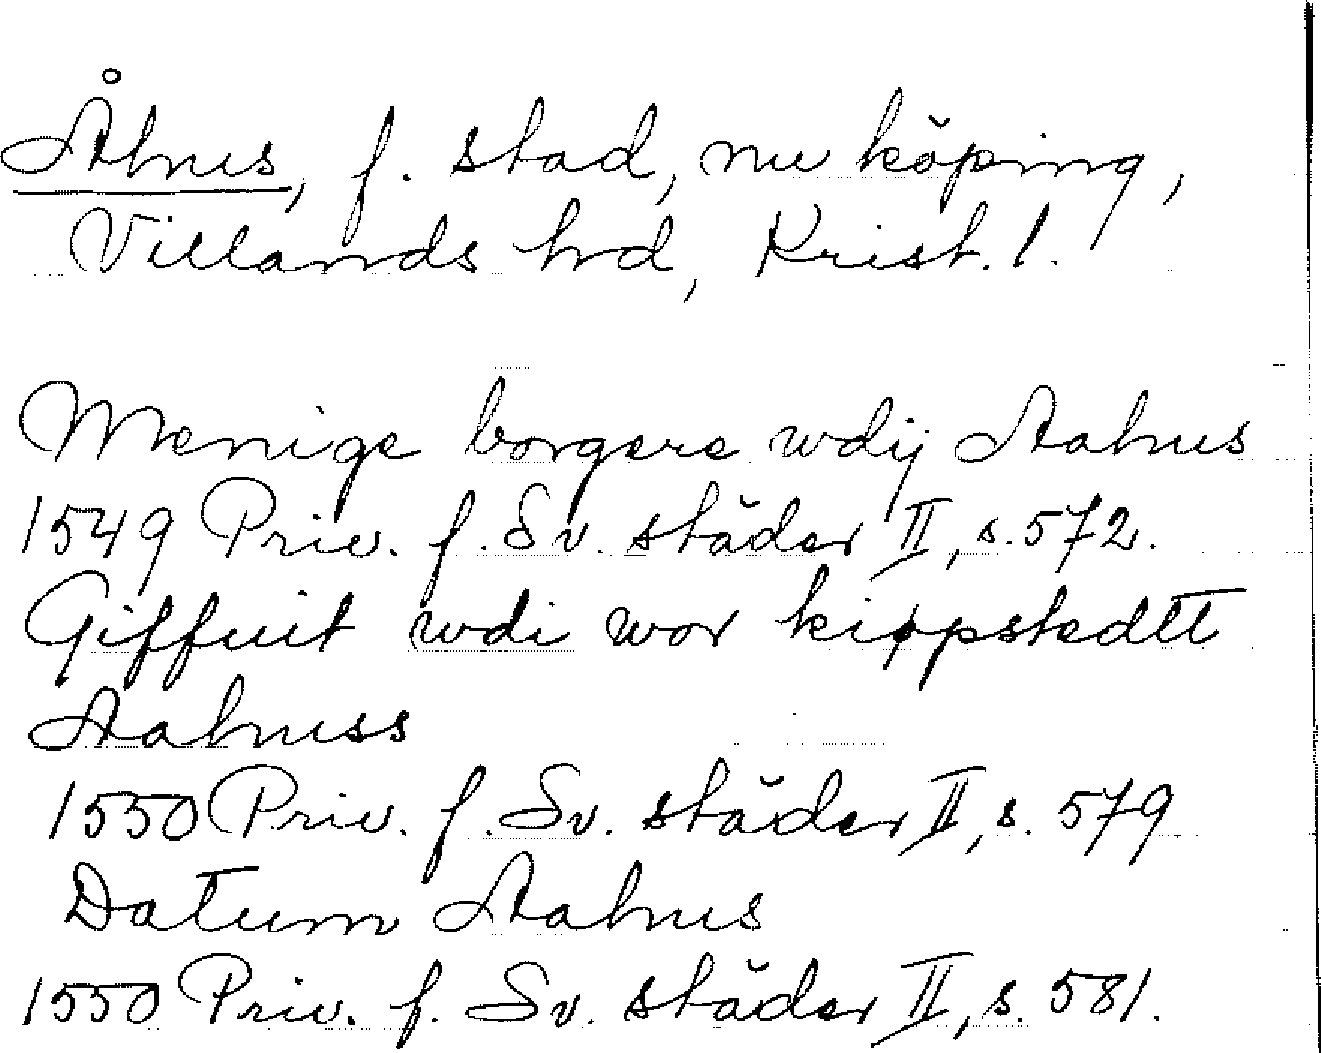 Åhus, f. stad, nu köping,
Villands hd, Krist. l.
Menige borgere wdij Aahus
1549 Priv. f. Sv. städer II, s. 572.
Giffuit wdi wor kippstedtt
Aahuss
1550 Priv. f. Sv. städer II, s. 579
Datum Aahus
1550 Priv. f. Sv. städer II, s. 581.